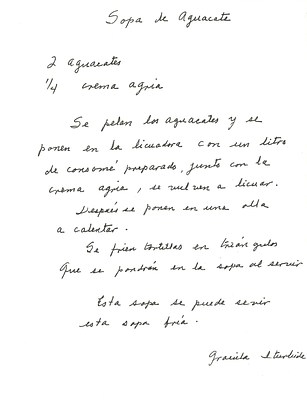 Sopa de Aguacate
2 aguacates
1/4 crema agria
Se pelan los aguacates y se
ponen en la licuadora con un litro
de consomé preparado, junto con la
crema agria, se vuelven a licuar.
Después se ponen en una olla
a calentar.
Se frien tortillas en triángulos
que se pondrán en la sopa al servir
Esta sopa se puede servir
esta sopa fría.
Graciela Iturbide